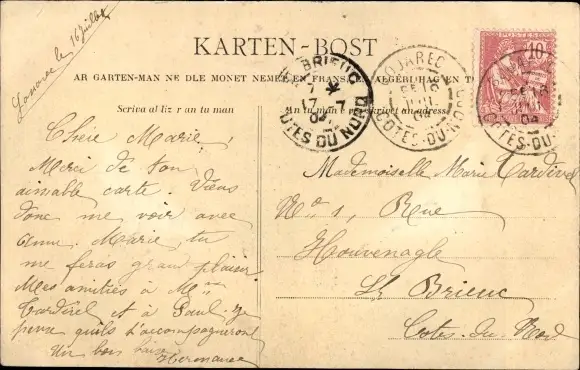 Gouarec le 16 Juillet
KARTEN-BOST
AR GARTEN-MAN NE DLE MONET NEMED EN FRANS, EN ALGERI, HAG EN T
Scriva al lizer an tu man
An tu man e skrivet an adress
ST BRIEUC
7 *
17 - 7
COTES DU NORD
GOUAREC
16
JUIL
COTES-DU-NORD
POSTES
10
COTES-DU-
Chère Marie,
Merci de ton
aimable carte. Viens
donc me voir avec
Anne Marie, tu
me feras grand plaisir.
Mes amitiés à Mme
Cardinel et à Paul, je
pense qu'ils t'accompagneront
Un bon baiser
Hermance
Mademoiselle Marie Cardinel
No 1, Rue
Houvenagle
St Brieuc
Côtes-du-Nord